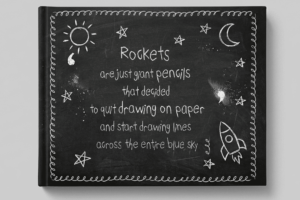 Rockets
are just giant pencils
that decided
to quit drawing on paper
and start drawing lines
across the entire blue sky